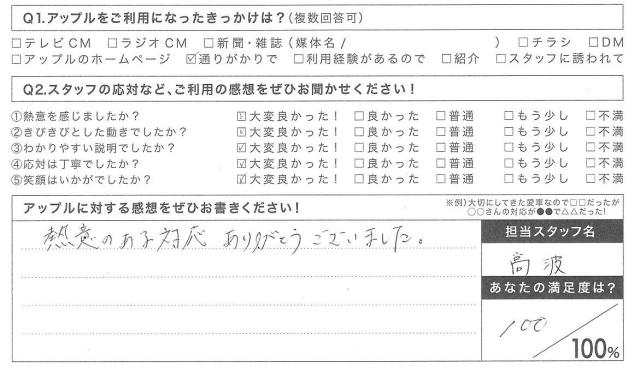 Q1.アップルをご利用になったきっかけは？（複数回答可）
□テレビCM □ラジオCM □新聞・雑誌（媒体名 / ） □チラシ □DM
□アップルのホームページ ☑通りがかりで □利用経験があるので □紹介 □スタッフに誘われて
Q2.スタッフの応対など、ご利用の感想をぜひお聞かせください！
①熱意を感じましたか？ ☑大変良かった！ □良かった □普通 □もう少し □不満
②きびきびとした動きでしたか？ ☑大変良かった！ □良かった □普通 □もう少し □不満
③わかりやすい説明でしたか？ ☑大変良かった！ □良かった □普通 □もう少し □不満
④応対は丁寧でしたか？ ☑大変良かった！ □良かった □普通 □もう少し □不満
⑤笑顔はいかがでしたか？ ☑大変良かった！ □良かった □普通 □もう少し □不満
アップルに対する感想をぜひお書きください！
※例）大切にしてきた愛車なので□□だったが
○○さんの対応が●●で△△だった！
熱意のある対応 ありがとうございました。
担当スタッフ名
高波
あなたの満足度は？
100
100%